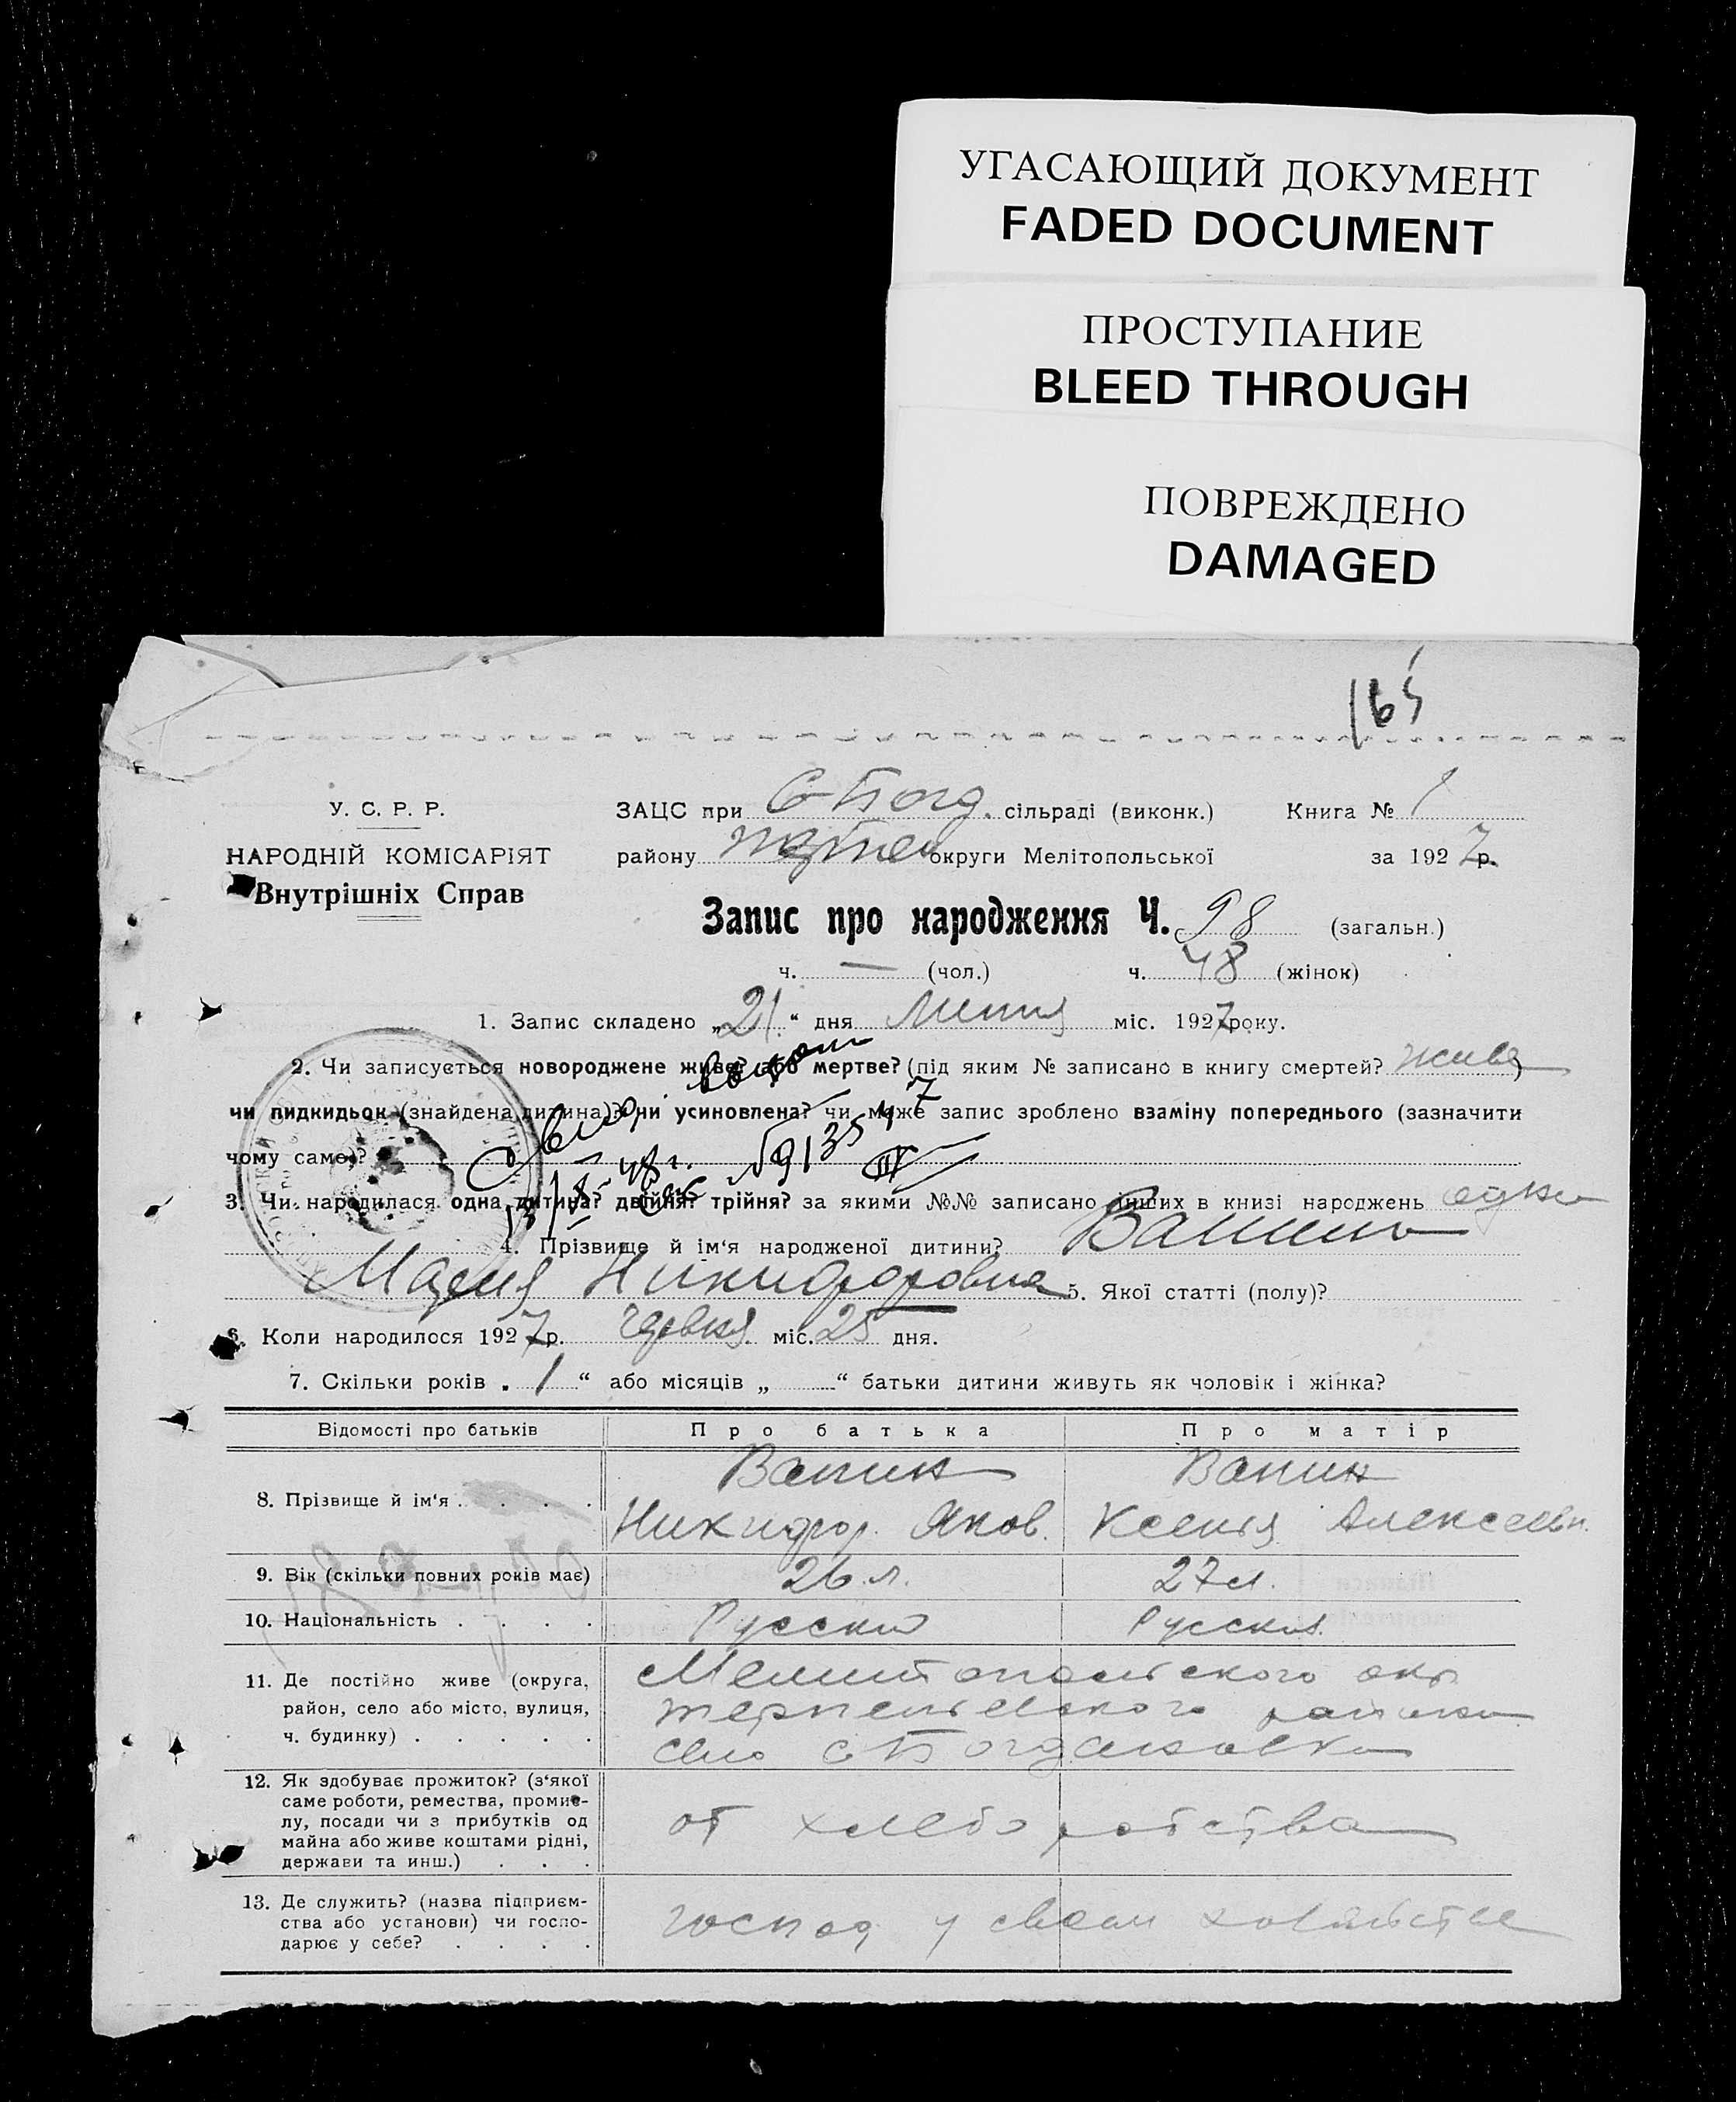 УГАСАЮЩИЙ ДОКУМЕНТ
FADED DOCUMENT
ПРОСТУПАНИЕ
BLEED THROUGH
ПОВРЕЖДЕНО
DAMAGED
165
У. С. Р. Р.
НАРОДНІЙ КОМІСАРІЯТ
Внутрішніх Справ
ЗАЦС при С-Богд. сільраді (виконк.) Книга № 1
району округи Мелітопольської за 1927 р.
Запис про народження Ч. 98 (загальн.)
ч. — (чол.) ч. 48 (жінок)
1. Запис складено „21.“ дня Липня міс. 1927 року.
2. Чи записується новороджене живе? або мертве? (під яким № записано в книгу смертей? жива)
чи пидкидьок (знайдена дитина)? чи усиновлена? чи може запис зроблено взаміну попереднього (зазначити
чому саме)?
3. Чи народилася одна дитина? двійня? трійня? за якими №№ записано инших в книзі народжень одна
4. Прізвище й ім‘я народженої дитини? Ванина
Мария Никифоровна 5. Якої статті (полу)?
6. Коли народилося 1927 р. Червня міс. 25 дня.
7. Скільки років „ 1 “ або місяців „ “ батьки дитини живуть як чоловік і жінка?
Відомості про батьків Про батька Про матір
8. Прізвище й ім‘я . . . . Ванин Ванин
Никифор. Яков. Ксения Алексеевн.
9. Вік (скільки повних років має) 26 л. 27 л.
10. Національність . . . . Русский Русская
11. Де постійно живе (округа, район, село або місто, вулиця, ч. будинку) . . . . .
Мелитопольского окр.
терпеньевского района
село с Богдановка
12. Як здобуває прожиток? (з‘якої саме роботи, ремества, промислу, посади чи з прибутків од майна або живе коштами рідні, держави та инш.) . . .
от хлеборобства
13. Де служить? (назва підприємства або установи) чи господарює у себе? . . . .
господ у своем хозяйстве